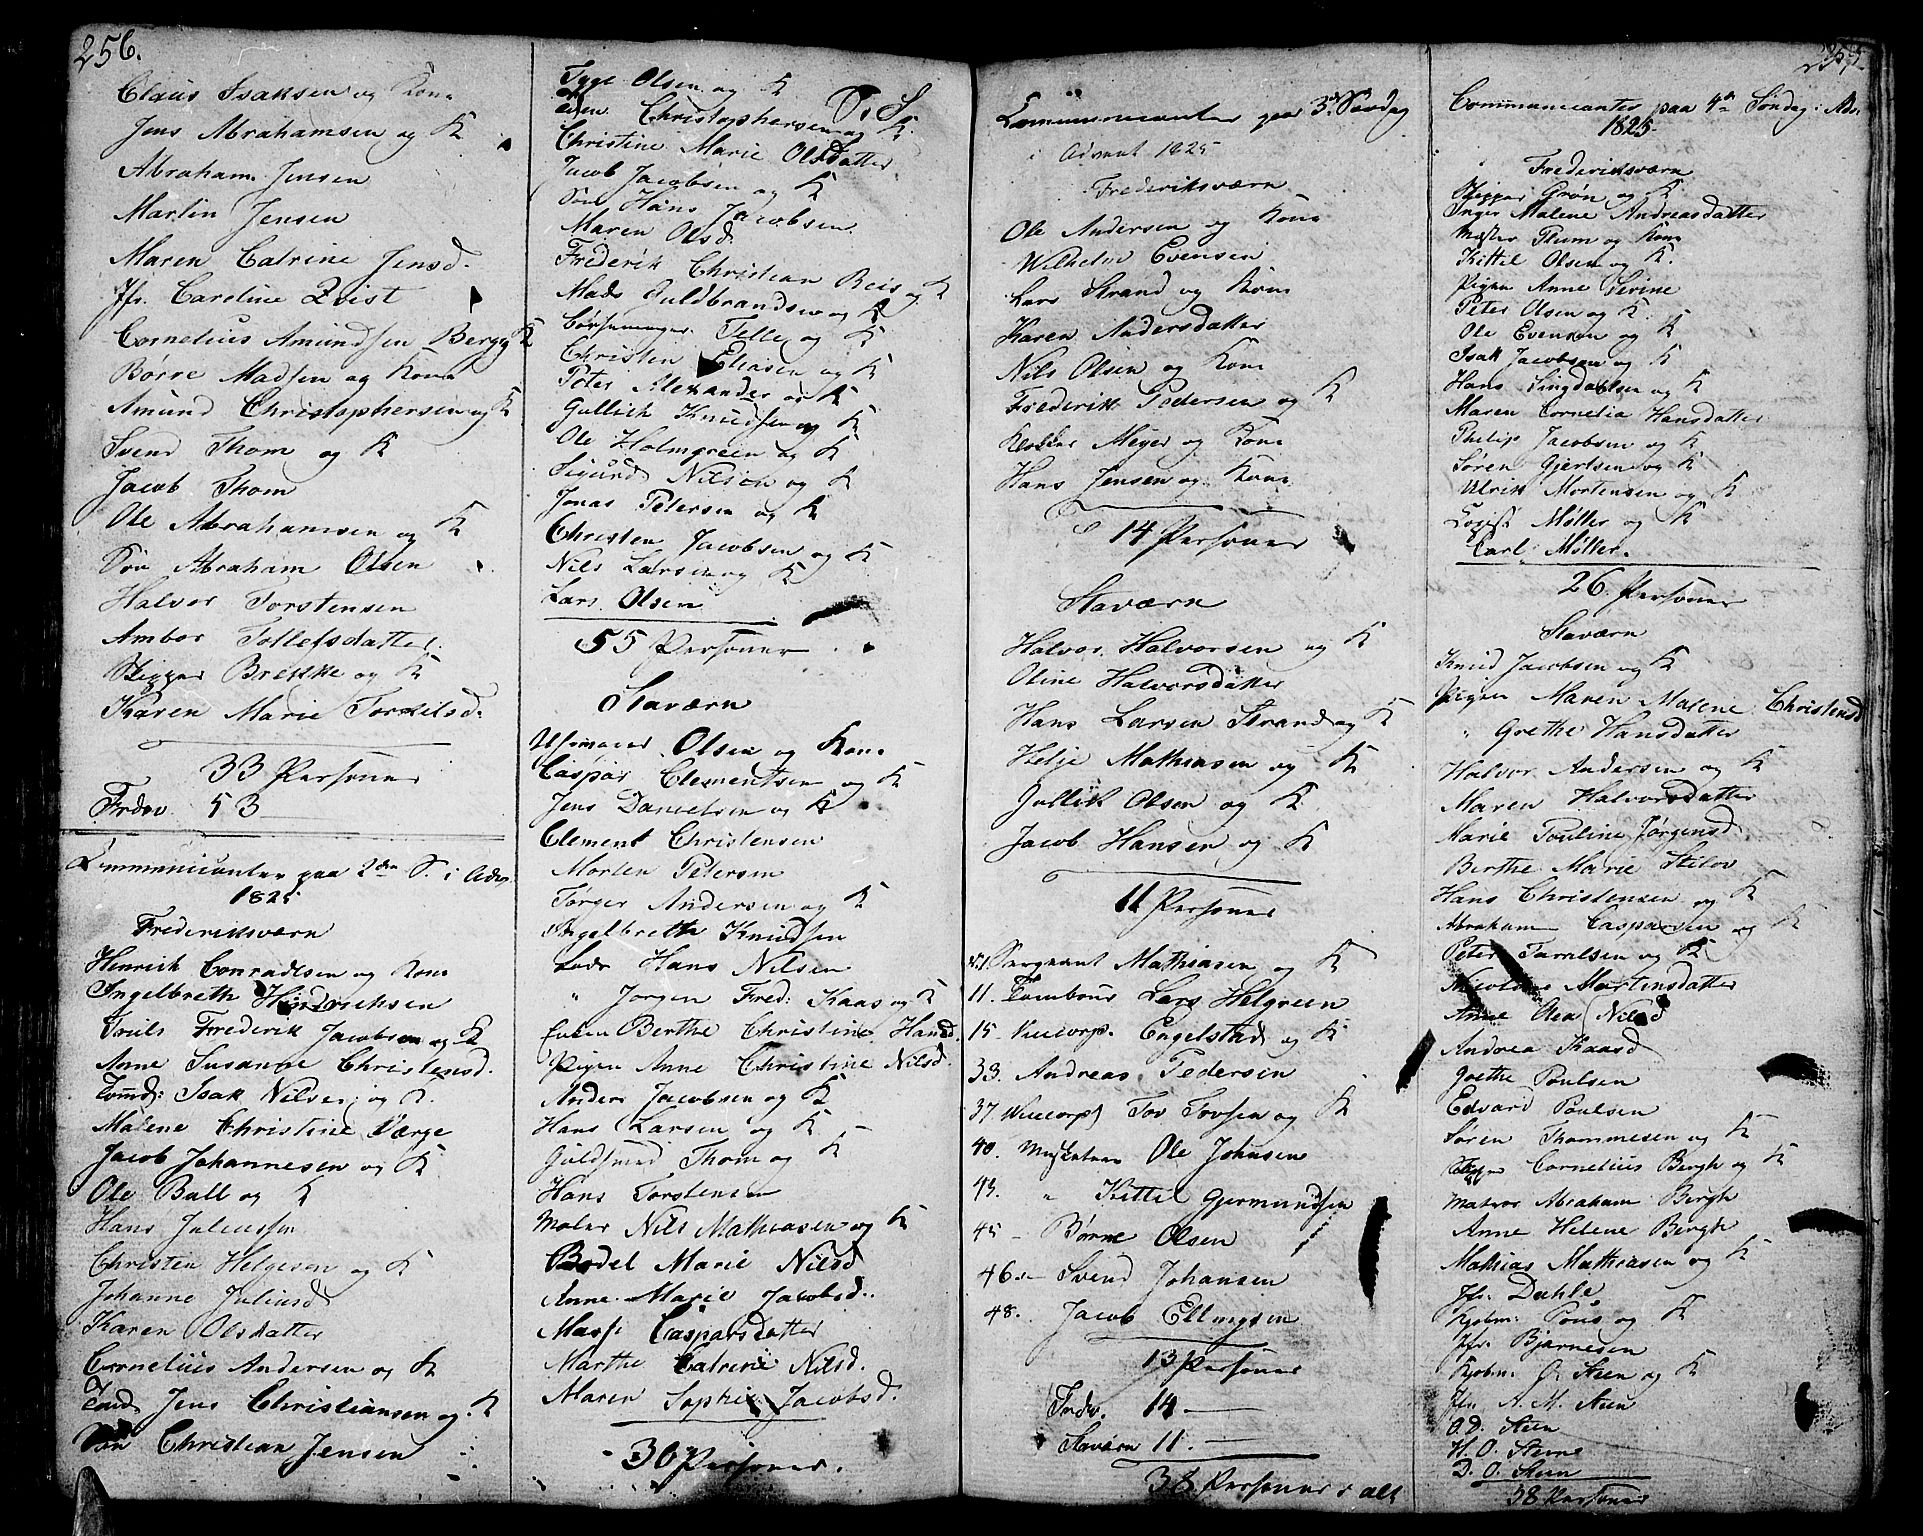 256.
Claus Isaksen og Kone
Jens Abrahamsen og K
Abraham Jensen
Martin Jensen
Maren Catrine Jensd.
Jfr. Caroline Qvist
Cornelius Amundsen Berg og K
Børre Madsen og Kone
Amund Christophersen og K
Svend Thom og K
Jacob Thom
Ole Abrahamsen og K
Søn Abraham Olsen
Halvor Torstensen
Ambor Tollefsdatter.
Skipper Brekke og K
Karen Marie Torkilsd.
33 Personer
Frdsv 53
Communicanter paa 2den S. i Adv.
1825
Frederiksværn
Henrich Conradsen og Kone
Ingelbreth Hindriksen
Frederik Jacobsen og K
Anne Susanne Christensd.
Tømd: Isak Nilsen og K.
Malene Christine Værge
Jacob Johannesen og K
Ole Ball og K
Hans Juliussen
Christen Helgesen og K
Johanne Juliusd
Karen Olsdatter
Cornelius Andersen og K
Tømd Jens Christiansen og K
Søn Christian Jensen
Tyge Olsen og K
Christophersen og K.
Christine Marie Olsdatter
Jacob Jacobsen og K
Søn Hans Jacobsen
Maren Olsd.
Frederik Christian Beis og K
Mads Guldbrandsen og K
Telle og K
Christen Eliasen og K
Peter Alexander og K
Gullich Knudsen og K
Ole Holmgreen og K
Sigurd Nilson og K
Jonas Petersen og K
Christen Jacobsen og K
Nils Larsen og K
Lars Olsen
55 Personer
Staværn
Olsen og Kone
Caspar Clementsen og K
Jens Danielsen og K
Clement Christensen
Morten Petersen
Tørger Andersen og K
Ingelbreth Knudsen
Lods Hans Nilsen
" Jørgen Fred: Kaas og K
Berthe Christine Hansd.
Pigen Anne Christine Nilsd.
Anders Jacobsen og K
Hans Larsen og K
Guldsmed Thom og K
Hans Torstensen
Maler Nils Mathiasen og K
Bodel Marie Nilsd
Anne Marie Jacobsd.
Casparsdatter
Marthe Catrine Nilsd.
Maren Sophie Jacobsd.
30 Personer.
Communicanter paa 3d Søndag
i Advent 1825
Frederiksværn
Ole Andersen og Kone
Wilhelm Evensen
Lars Strand og Kone
Karen Andersdatter
Nils Olsen og Kone
Frederik Pedersen og K
Klokker Meyer og Kone
Hans Jensen og Kone
14 Personer
Staværn
Halvor Halvorsen og K
Oline Halvorsdatter
Hans Larsen Strand og K
Helje Mathiasen og K
Gullich Olsen og K.
Jacob Hansen og K
11 Personer
Sargeant Mathiasen og K
11. Tambour Lars Helgreen
15. Vicecorp. Engelstad og K
33. Andreas Pedersen
37 Vicecorp Tov Tovsen og K
40. Musketeer Ole Johnsen
43. " Kittil Gjermundsen
45 - Børne Olsen
46. - Svend Johansen
48. Jacob Ellingsen
13 Personer
Frdsv. 14 —
Staværn 11. —
38 Personer i alt
257.
Communicanter paa 4de Søndag i Adv.
1825
Frederiksværn
Skipper Grøn og K
Inger Malene Andreasdatter
Mester Plum og Kone
Kittel Olsen og K.
Pigen Anne Sevine
Peter Olsen og K.
Ole Evensen og K
Isak Jacobsen og K
Hans Lingdahlsen og K
Maren Cornelia Hansdatter
Philip Jacobsen og K
Søren Gjertsen og K
Ulrik Mortensen og K
Møller og K
Carl Møller.
26 Personer
Staværn
Knud Jacobsen og K
Pigen Maren Malene Christensd
" Grethe Hansdatter
Halvor Andersen og K
Maren Halvorsdatter
Marie Pouline Jørgensd.
Berthe Marie Skilov
Hans Christensen og K
Abraham Caspersen og K
Peter Torrelsen og K
Mortensdatter
Anne Olea Nilsd
Andrea Kaasd
Grethe Poulsen
Edvard Poulsen
Søren Thommesen og K
Skipper Cornelius Bergh og K
Matros Abraham Bergh
Anne Helene Bergh
Mathias Mathiasen og K
Jfr. Dahle
Kjøbm: Pous og K
Jfr. Bjørnesen
Kjøbm: O. Steen og K
Jfr. A. M. Steen
O. D. Steen
H. O. Steene
D. O. Steen
38 Personer